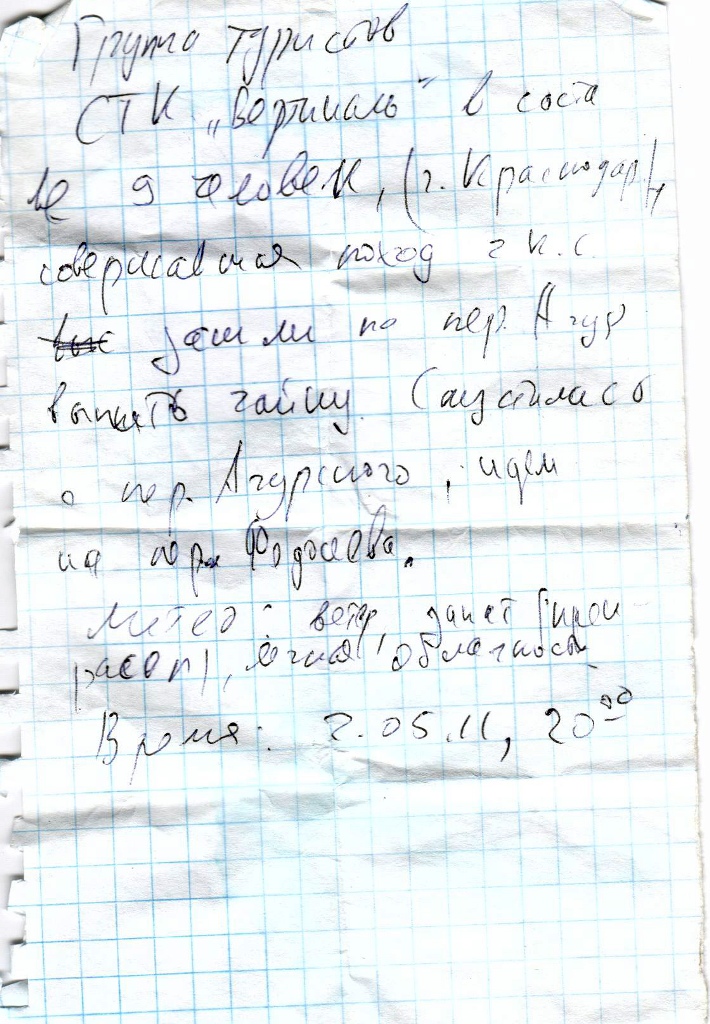 Группа туристов
СТК „Вертикаль" в соста
ве 9 человек, (г. Краснодар),
совершавшая поход 2 к.с.
зашли на пер. Агур
выпить чайку. Спустилась
с пер. Агурского, идем
на пер. Фодосева.
Метео: ветер запад
легкая облачность
Время: 2.05.11, 20⁰⁰